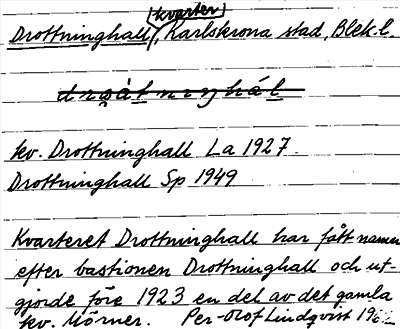 (kvarter)
Drottninghall, Karlskrona stad, Blek. l.
kv. Drottninghall La 1927.
Drottninghall Sp 1949
Kvarteret Drottninghall har fått namn
efter bastionen Drottninghall och ut-
gjorde före 1923 en del av det gamla
kv. Mörner. Per-Olof Lindqvist